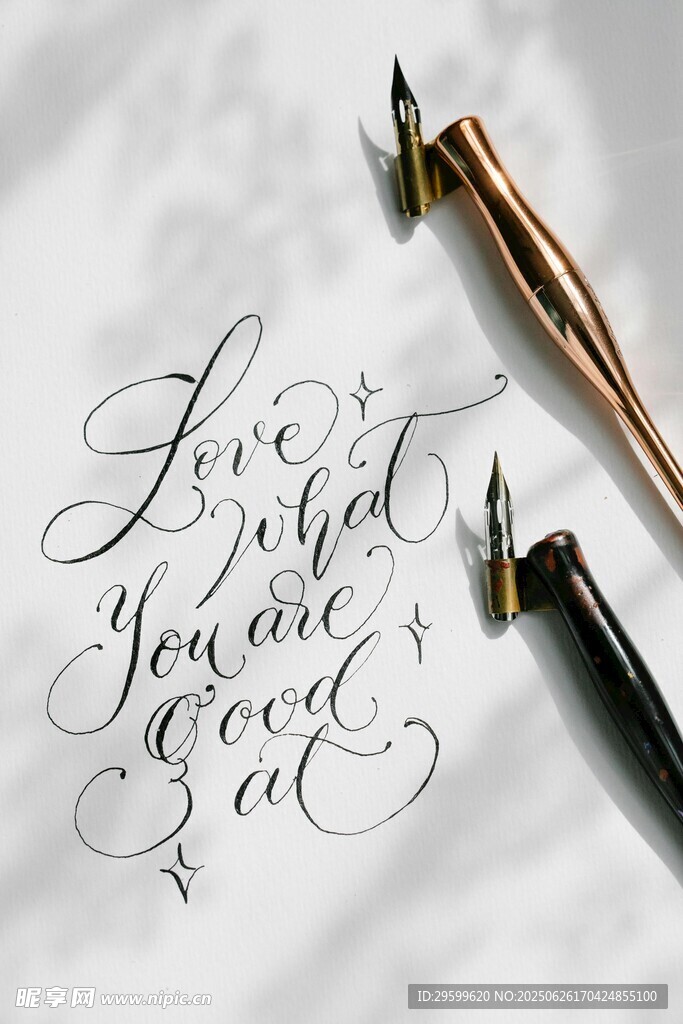 Love
what
You are
Good
at
昵享网 www.nipic.cn
ID:29599620 NO:20250626170424855100